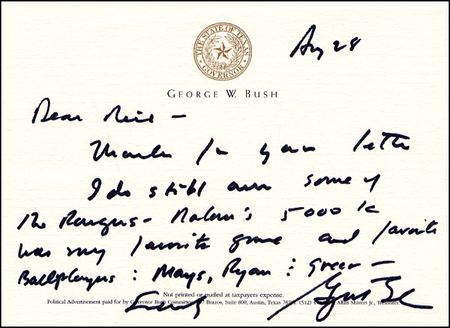 THE STATE OF TEXAS
GOVERNOR
Aug 28
GEORGE W. BUSH
Dear
Thanks for your letter
I do still own some of
the Rangers - Nolan's 5000 K
was my favorite game and favorite
Ballplayers : Mays, Ryan : Greer -
Not printed or mailed at taxpayers expense.
Political Advertisement paid for by Governor Bush Committee, Suite 800, Austin, Texas (512)